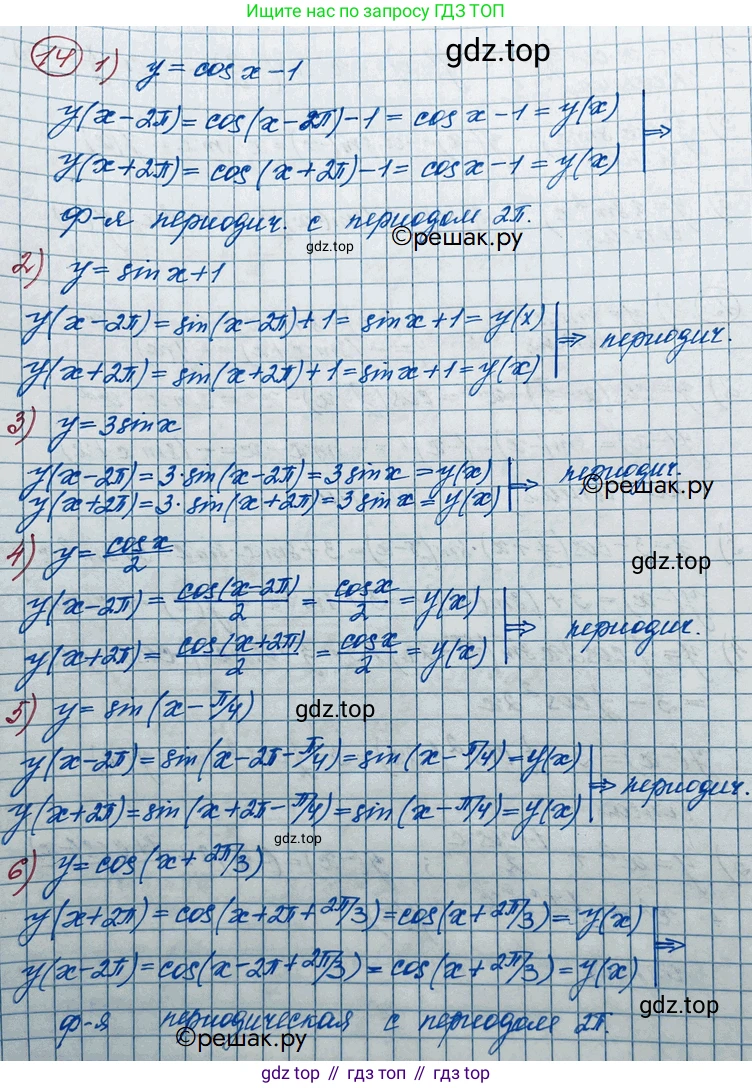 Ищите нас по запросу ГДЗ ТОП
gdz.top
14 1) y = cos x - 1
y(x-2π) = cos(x-2π)-1 = cos x - 1 = y(x)
y(x+2π) = cos(x+2π)-1 = cosx - 1 = y(x) ⇒
ф-я периодич. с периодом 2π.
gdz.top ©решак.ру
2) y = sin x+1
y(x-2π) = sin(x-2π)+1 = sinx+1 = y(x)
⇒ периодич.
y(x+2π) = sin(x+2π)+1 = sinx+1 = y(x)
3) y = 3sinx
y(x-2π) = 3·sin(x-2π) = 3sinx = y(x) ⇒ периодич.
©решак.ру
y(x+2π) = 3·sin(x+2π) = 3sinx = y(x)
4) y = cosx/2
gdz.top
y(x-2π) = cos(x-2π)/2 = cosx/2 = y(x)
⇒ периодич.
y(x+2π) = cos(x+2π)/2 = cosx/2 = y(x)
5) y = sin(x-π/4)
gdz.top
y(x-2π) = sin(x-2π-π/4) = sin(x-π/4) = y(x)
⇒ периодич.
y(x+2π) = sin(x+2π-π/4) = sin(x-π/4) = y(x)
gdz.top
6) y = cos(x+2π/3)
y(x+2π) = cos(x+2π+2π/3) = cos(x+2π/3) = y(x)
⇒
y(x-2π) = cos(x-2π+2π/3) = cos(x+2π/3) = y(x)
gdz.top
ф-я периодическая с периодом 2π.
©решак.ру
gdz.top // гдз топ // гдз.top